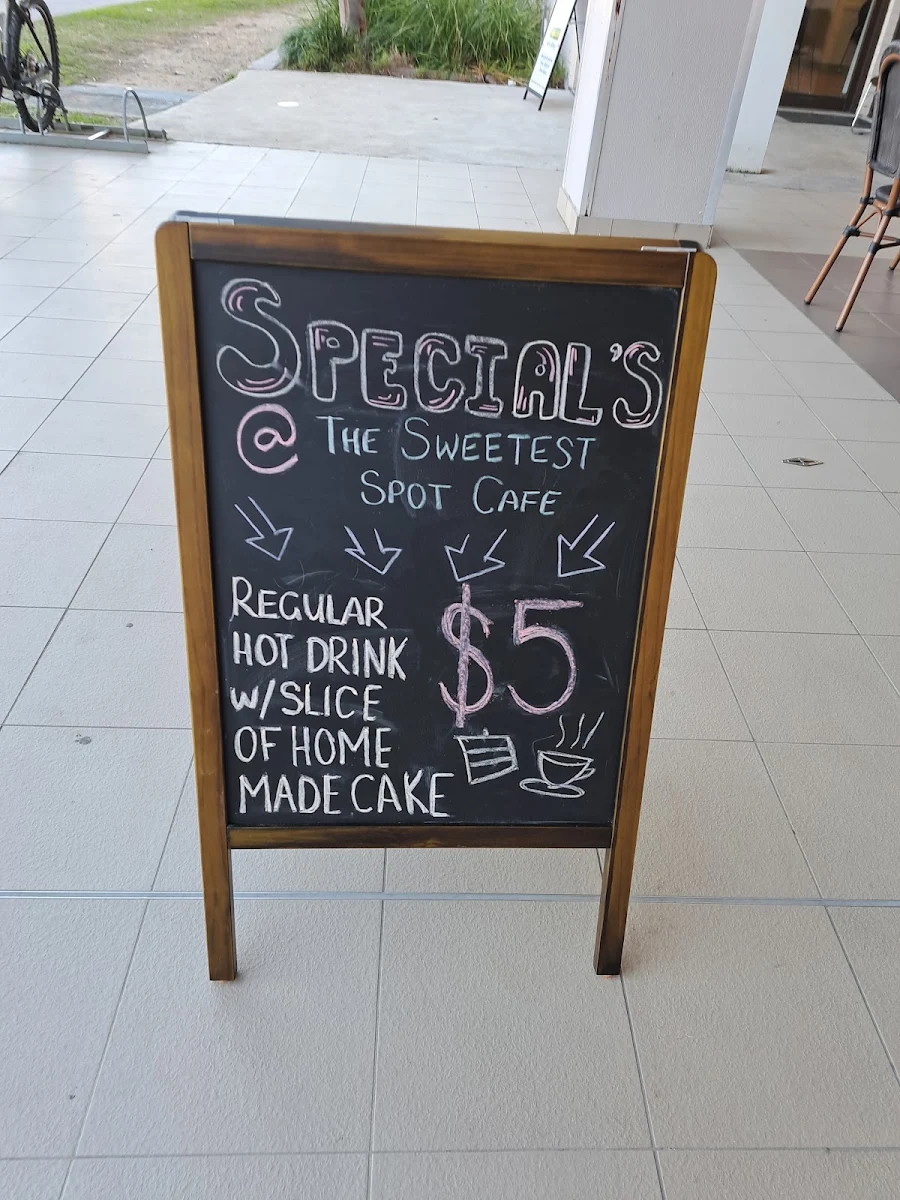 SPECIAL'S
@ THE SWEETEST
SPOT CAFE
REGULAR
HOT DRINK
W/SLICE
OF HOME
MADE CAKE
$5